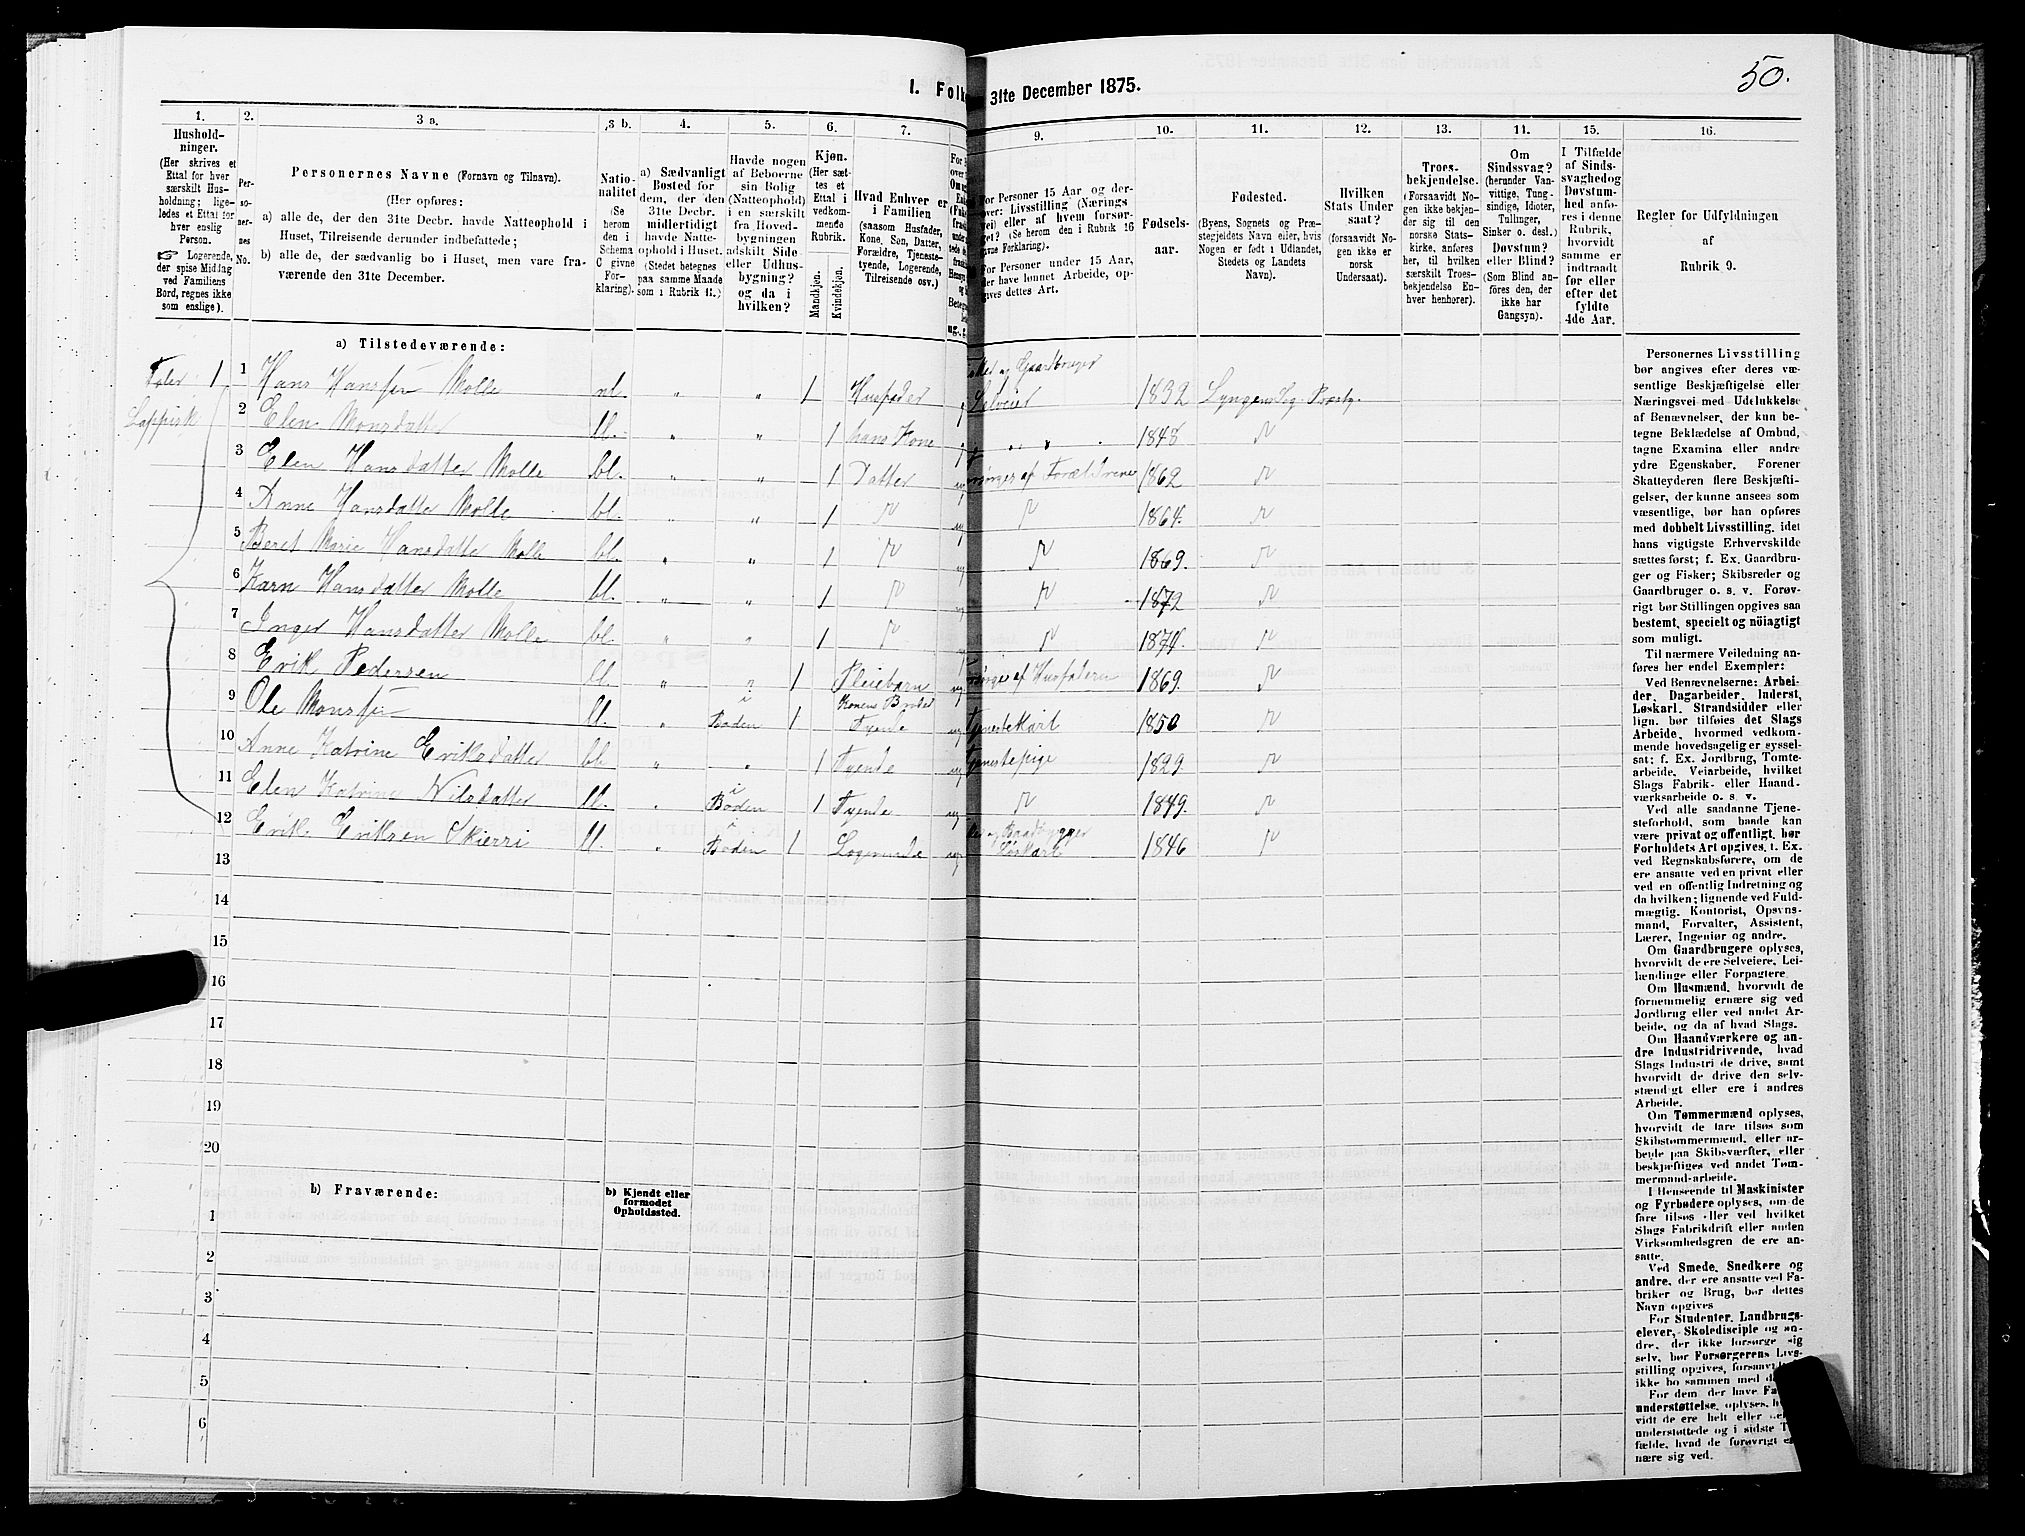 50.
1. Folk 31te December 1875.
1. 2. 3 a. 3 b. 4. 5. 6. 7. 9. 10. 11. 12. 13. 11. 15. 16.
Hushold-
ninger.
(Her skrives et
Ettal for hver
særskilt Hus-
holdning; lige-
ledes et Ettal for
hver enslig
Person.
☞ Logerende,
der spise Middag
ved Familiens
Bord, regnes ikke
som enslige).
Per-
so-
ner-
nes
No.
Personernes Navne (Fornavn og Tilnavn).
(Her opføres:
a) alle de, der den 31te Decbr. havde Natteophold i
Huset, Tilreisende derunder indbefattede;
b) alle de, der sædvanlig bo i Huset, men vare fra-
værende den 31te December.
Natio-
nalitet
(Se
herom
den i
Schema
C givne
For-
klaring).
a) Sædvanligt
Bosted for
dem, der den
31te Decbr.
midlertidigt
havde Natte-
ophold i Huset.
(Stedet betegnes
paa samme Maade
som i Rubrik 11.)
Havde nogen
af Beboerne
sin Bolig
(Natteophold)
i en særskilt
fra Hoved-
bygningen
adskilt Side-
eller Udhus-
bygning?
og da i
hvilken?
Kjøn.
(Her sæt-
tes et
Ettal i
vedkom-
mende
Rubrik.
Mandkjøn.
Kvindekjøn.
Hvad Enhver er
i Familien
(saasom Husfader,
Kone, Søn, Datter,
Forældre, Tjeneste-
tyende, Logerende,
Tilreisende osv.)
For Personer 15 Aar og der-
over: Livsstilling (Nærings
vei) eller af hvem forsør-
get? (Se herom den i Rubrik 16
givne Forklaring).
For Personer under 15 Aar,
der have lønnet Arbeide, op-
gives dettes Art.
Fødsels-
aar.
Fødested.
(Byens, Sognets og Præ-
stegjeldets Navn eller, hvis
Nogen er født i Udlandet,
Stedets og Landets
Navn).
Hvilken
Stats Under
saat?
(forsaavidt No-
gen ikke er
norsk
Undersaat).
Troes-
bekjendelse.
(Forsaavidt No-
gen ikke bekjen-
der sig til den
norske Stats-
kirke, anføres
her, til hvilken
særskilt Troes-
bekjendelse En-
hver henhører).
Om
Sindssvag?
(herunder Van-
vittige, Tung-
sindige, Idioter,
Tullinger,
Sinker o. desl.)
Døvstum?
eller Blind?
(Som Blind an-
føres den, der
ikke har
Gangsyn).
I Tilfælde
af Sinds-
svaghed og
Døvstum-
hed anfø-
res i denne
Rubrik,
hvorvidt
samme er
indtraadt
før eller
efter det
fyldte
4de Aar.
Regler for Udfyldningen
af
Rubrik 9.
a) Tilstedeværende:
Taler 1 1 Hans Hansen Molle nl. " " 1 Husfader og Gaardbruger Selveier 1832 Lyngenslig Præstg.
Lappisk 2 Elen Monsdatter ll. " " 1 hans Kone " " 1848 "
3 Elen Hansdatter Molle bl. " " 1 Datter forsørges af Forældrene 1862 "
4 Anne Hansdatter Molle bl. " " 1 " " 1864. "
5 Beret Marie Hansdatter Molle bl. " " 1 " " 1869. "
6 Karn Hansdatter Molle bl. " " 1 " " 1872 "
7 Inger Hansdatter Molle bl. " " 1 " " 1874. "
8 Erik Pedersen ll. " " 1 Pleiebarn forsørges af Husfaderen 1869. "
9 Ole Monsen ll. " i Boden 1 Konens Broder Tyende ug Tjenestekarl 1850 "
10 Anne Katrine Eriksdatter bl " " 1 Tyende ug Tjenestepige 1829. "
11 Elen Katrine Nilsdatter ll. " i Boden 1 Tyende ug " 1849. "
12 Erik Eriksen Skierri ll. " i Boden 1 Logerende ug Baadbygger Løskarl 1846 "
13
14
15
16
17
18
19
20
b) Fraværende:
b) Kjendt eller
formodet
Opholdssted.
1
2
3
4
5
6
Personernes Livsstilling
bør angives efter deres væ-
sentlige Beskjæftigelse eller
Næringsvei med Udelukkelse
af Benævnelser, der kun be-
tegne Beklædelse af Ombud,
tagne Examina eller andre
ydre Egenskaber. Forener
Skatteyderen flere Beskjæfti-
gelser, der kunne ansees som
væsentlige, bør han opføres
med dobbelt Livsstilling, idet
hans vigtigste Erhvervskilde
sættes først; f. Ex. Gaardbru-
ger og Fisker; Skibsreder og
Gaardbruger o. s. v. Forøv-
rigt bør Stillingen opgives saa
bestemt, specielt og nöiagtigt
som muligt.
Til nærmere Veiledning an-
føres her endel Exempler:
Ved Benævnelserne: Arbei-
der, Dagarbeider, Inderst,
Løskarl, Strandsidder eller
lign. bør tilføies det Slags
Arbeide, hvormed vedkom-
mende hovedsagelig er syssel-
sat; f. Ex. Jordbrug, Tomte-
arbeide, Veiarbeide, hvilket
Slags Fabrik- eller Haand-
værksarbeide o. s. v.
Ved alle saadanne Tjene-
steforhold, som baade kan
være privat og offentligt, bør
Forholdets Art opgives, t. Ex.
ved Regnskabsførere, om de
ere ansatte ved en privat eller
ved en offentlig Indretning og
da hvilken; lignende ved Fuld-
mægtig, Kontorist, Opsyns-
mand, Forvalter, Assistent,
Lærer, Ingeniør og andre.
Om Gaardbrugere oplyses,
hvorvidt de ere Selveiere, Lei-
lændinge eller Forpagtere.
Om Husmænd, hvorvidt de
fornemmelig ernære sig ved
Jordbrug eller ved andet Ar-
beide, og da af hvad Slags.
Om Haandværkere og an-
dre Industridrivende, hvad
Slags Industri de drive, samt
hvorvidt de drive den selv-
stændigt eller ere i andres
Arbeide.
Om Tømmermænd oplyses,
hvorvidt de fare tilsøs som
Skibstømmermænd, eller ar-
beide paa Skibsværfter, eller
beskjæftiges ved andet Tøm-
mermand-arbeide.
I Henseende til Maskinister
og Fyrbødere oplyses, om de
fare tilsøs eller ved hvilket
Slags Fabrikdrift eller anden
Virksomhedsgren de ere an-
satte.
Ved Smede, Snedkere og
andre, der ere ansatte ved Fa-
briker og Brug, bør dettes
Navn opgives
For Studenter, Landbrugs-
elever, Skoledisciple og an-
dre, der ikke forsørge sig
selv, bør Forsørgerens Livs-
stilling opgives, forsaavidt
ikke bo sammen med
For dem, der have
understøttelse, oplyses,
vidt de ere helt eller
understøttede og i sidste
fælde, hvad de forøvrigt
nære sig ved.